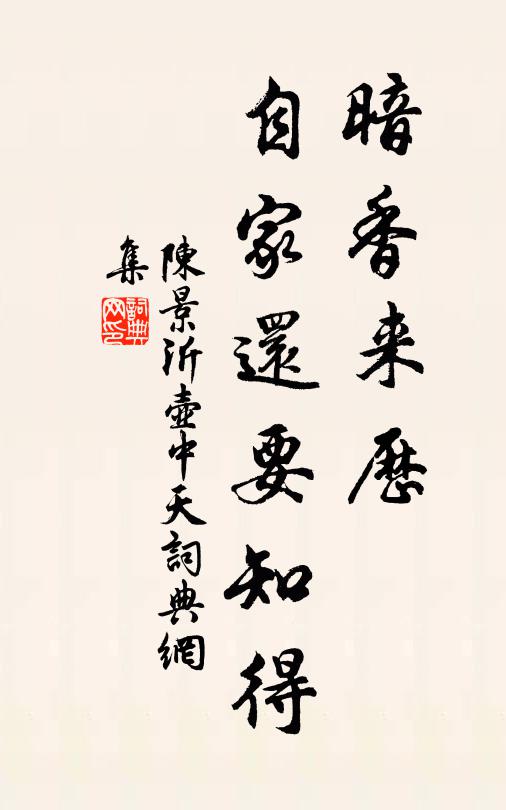 暗香来歷
自家還要知得
陳景沂壺中天詞典網
集
詞典網印